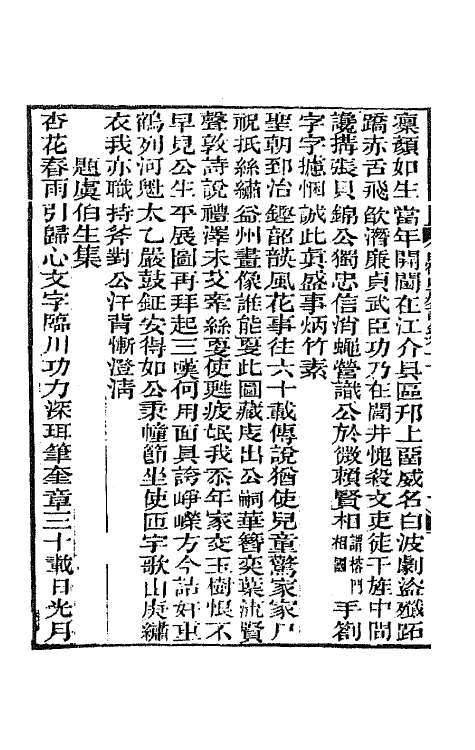 凜顏如生當年開閫在江介具區邗上畱威名白波劇盜殲跖
蹻赤舌飛歛濳廉貞武臣功乃在閭井愧殺文吏徒干旄中間
讒搆張貝錦公獨忠信消蠅營識公於微賴賢相謂榕門相國手劄
字字攄悃誠此真盛事炳竹素
聖朝郅治鏗韶韺風花事往六十載傳說猶使兒童驚家家尸
祝抵絲繡益州畫像誰能夏此圖藏庋出公嗣華簪奕葉流賢
聲敦詩說禮澤未艾牽絲夏使甦疲氓我忝年家交玉樹恨不
早見公生平展圖再拜起三嘆何用面具誇崢嶸方今詰奸重
鶴列河魁太乙嚴鼓鉦安得如公秉幢節坐使匝宇歌山庚繡
衣我亦職持斧對公汗背慚澄淸
題虞伯生集
杏花春雨引歸心文字臨川功力深珥筆奎章三十載日光月